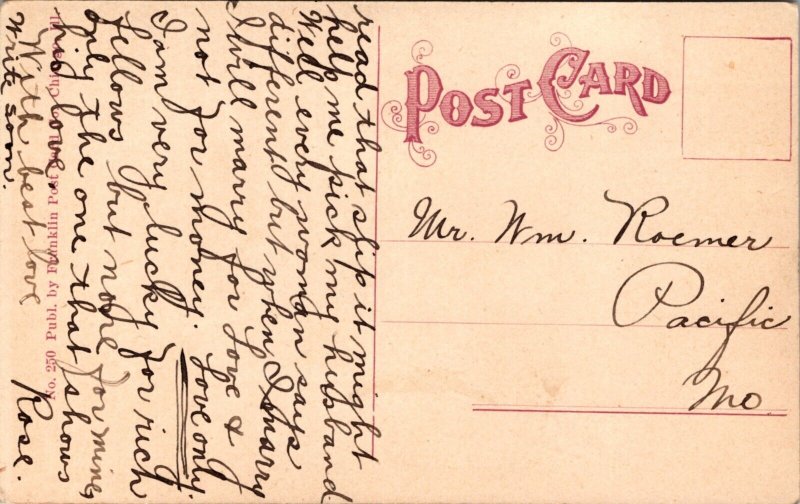 read that slip it might
help me pick my husband
Well every woman says
different but when I marry
I will marry for Love &
not for money. Love only.
I am very lucky for rich
fellows but none for mine,
only the one that shows
his love.
With best love
Write soon. Rose.
No. 250 Publ. by Franklin Post Card Co., Chicago, Ill.
POST CARD
Mr. Wm. Roemer
Pacific
Mo